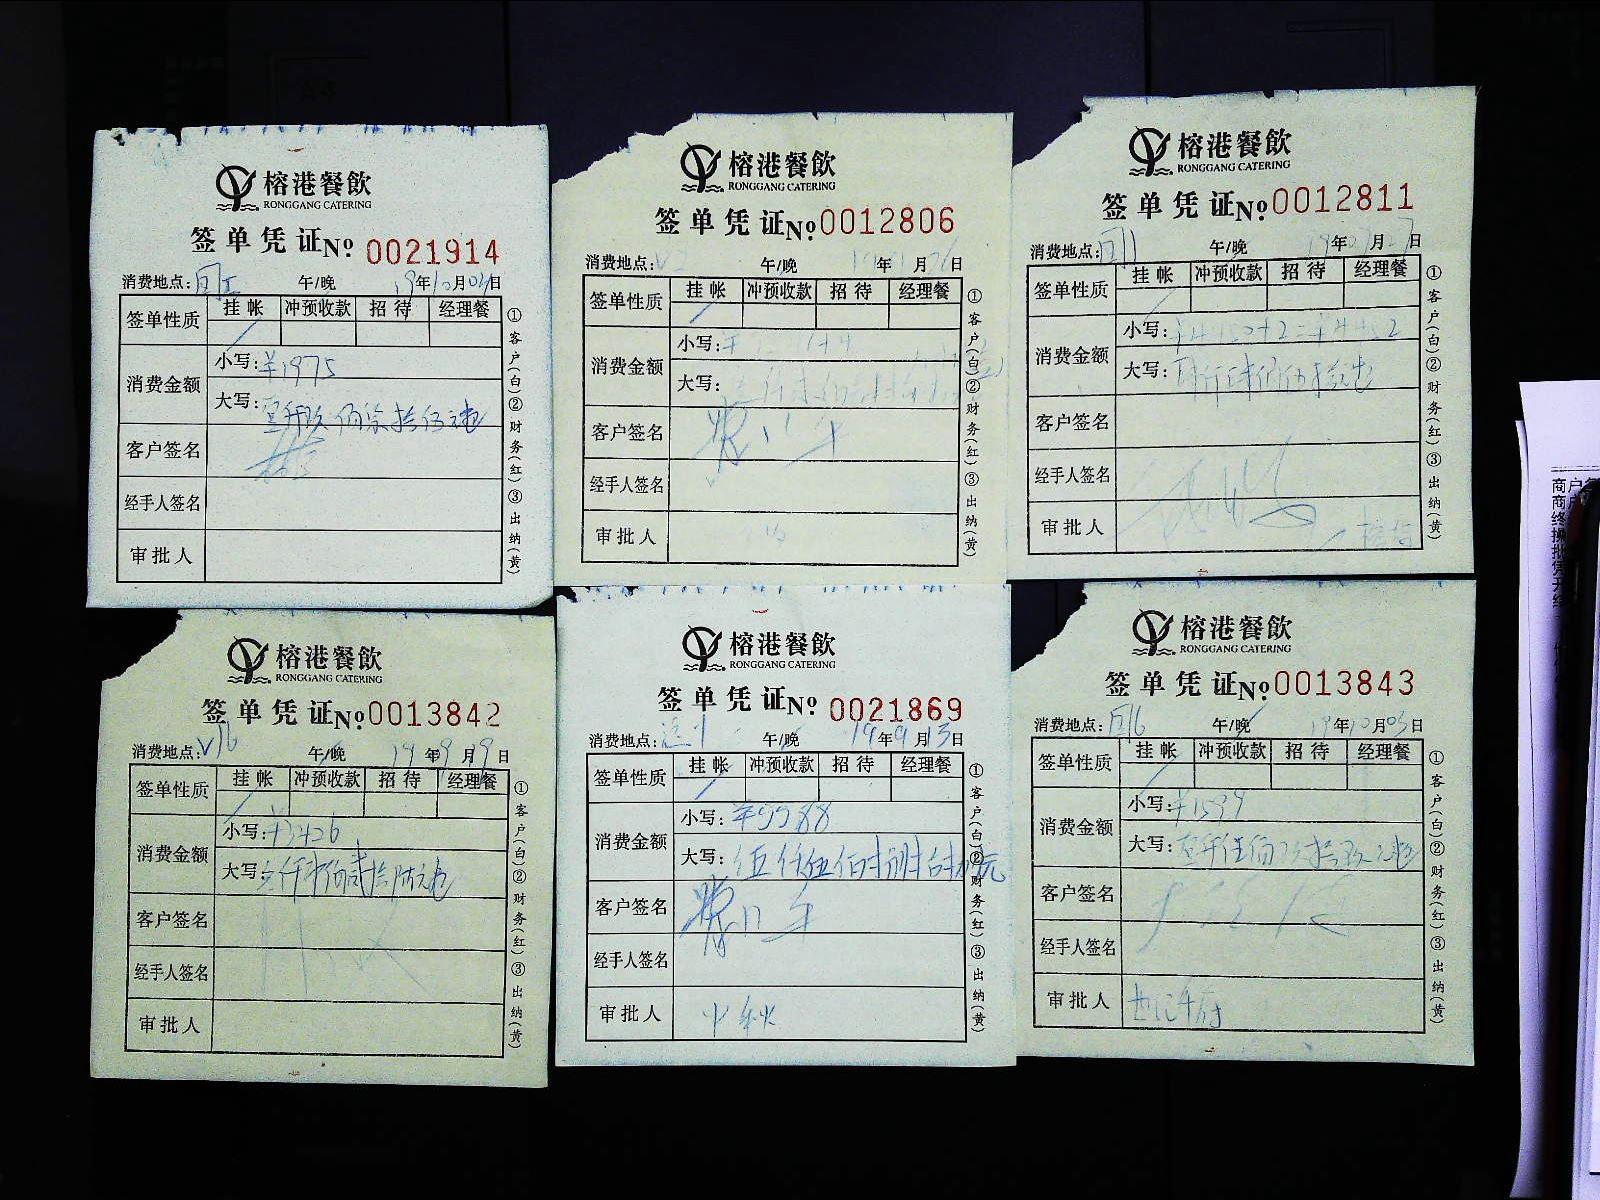 榕港餐飲
RONGGANG CATERING
签单凭证 No 0021914
消费地点: 午/晚 19年10月04日
签单性质 挂帐 冲预收款 招待 经理餐
消费金额 小写:¥1975
大写:壹仟玖佰柒拾伍元整
客户签名
经手人签名
审批人
①客户(白)②财务(红)③出纳(黄)
榕港餐飲
RONGGANG CATERING
签单凭证 No 0012806
消费地点: 午/晚 19年 月26日
签单性质 挂帐 冲预收款 招待 经理餐
消费金额 小写:
大写:
客户签名
经手人签名
审批人
①客户(白)②财务(红)③出纳(黄)
榕港餐飲
RONGGANG CATERING
签单凭证 No 0012811
消费地点: 午/晚 19年07月27日
签单性质 挂帐 冲预收款 招待 经理餐
消费金额 小写:¥4450+2=¥4452
大写:
客户签名
经手人签名
审批人
①客户(白)②财务(红)③出纳(黄)
榕港餐飲
RONGGANG CATERING
签单凭证 No 0013842
消费地点:V16 午/晚 19年9月9日
签单性质 挂帐 冲预收款 招待 经理餐
消费金额 小写:¥3426
大写:叁仟肆佰贰拾陆元整
客户签名
经手人签名
审批人
①客户(白)②财务(红)③出纳(黄)
榕港餐飲
RONGGANG CATERING
签单凭证 No 0021869
消费地点: 午/晚 19年9月13日
签单性质 挂帐 冲预收款 招待 经理餐
消费金额 小写:¥5588
大写:伍仟伍佰捌拾捌元
客户签名
经手人签名
审批人 中秋
①客户(白)②财务(红)③出纳(黄)
榕港餐飲
RONGGANG CATERING
签单凭证 No 0013843
消费地点: 午/晚 19年10月03日
签单性质 挂帐 冲预收款 招待 经理餐
消费金额 小写:¥1599
大写:壹仟伍佰玖拾玖元整
客户签名
经手人签名
审批人
①客户(白)②财务(红)③出纳(黄)